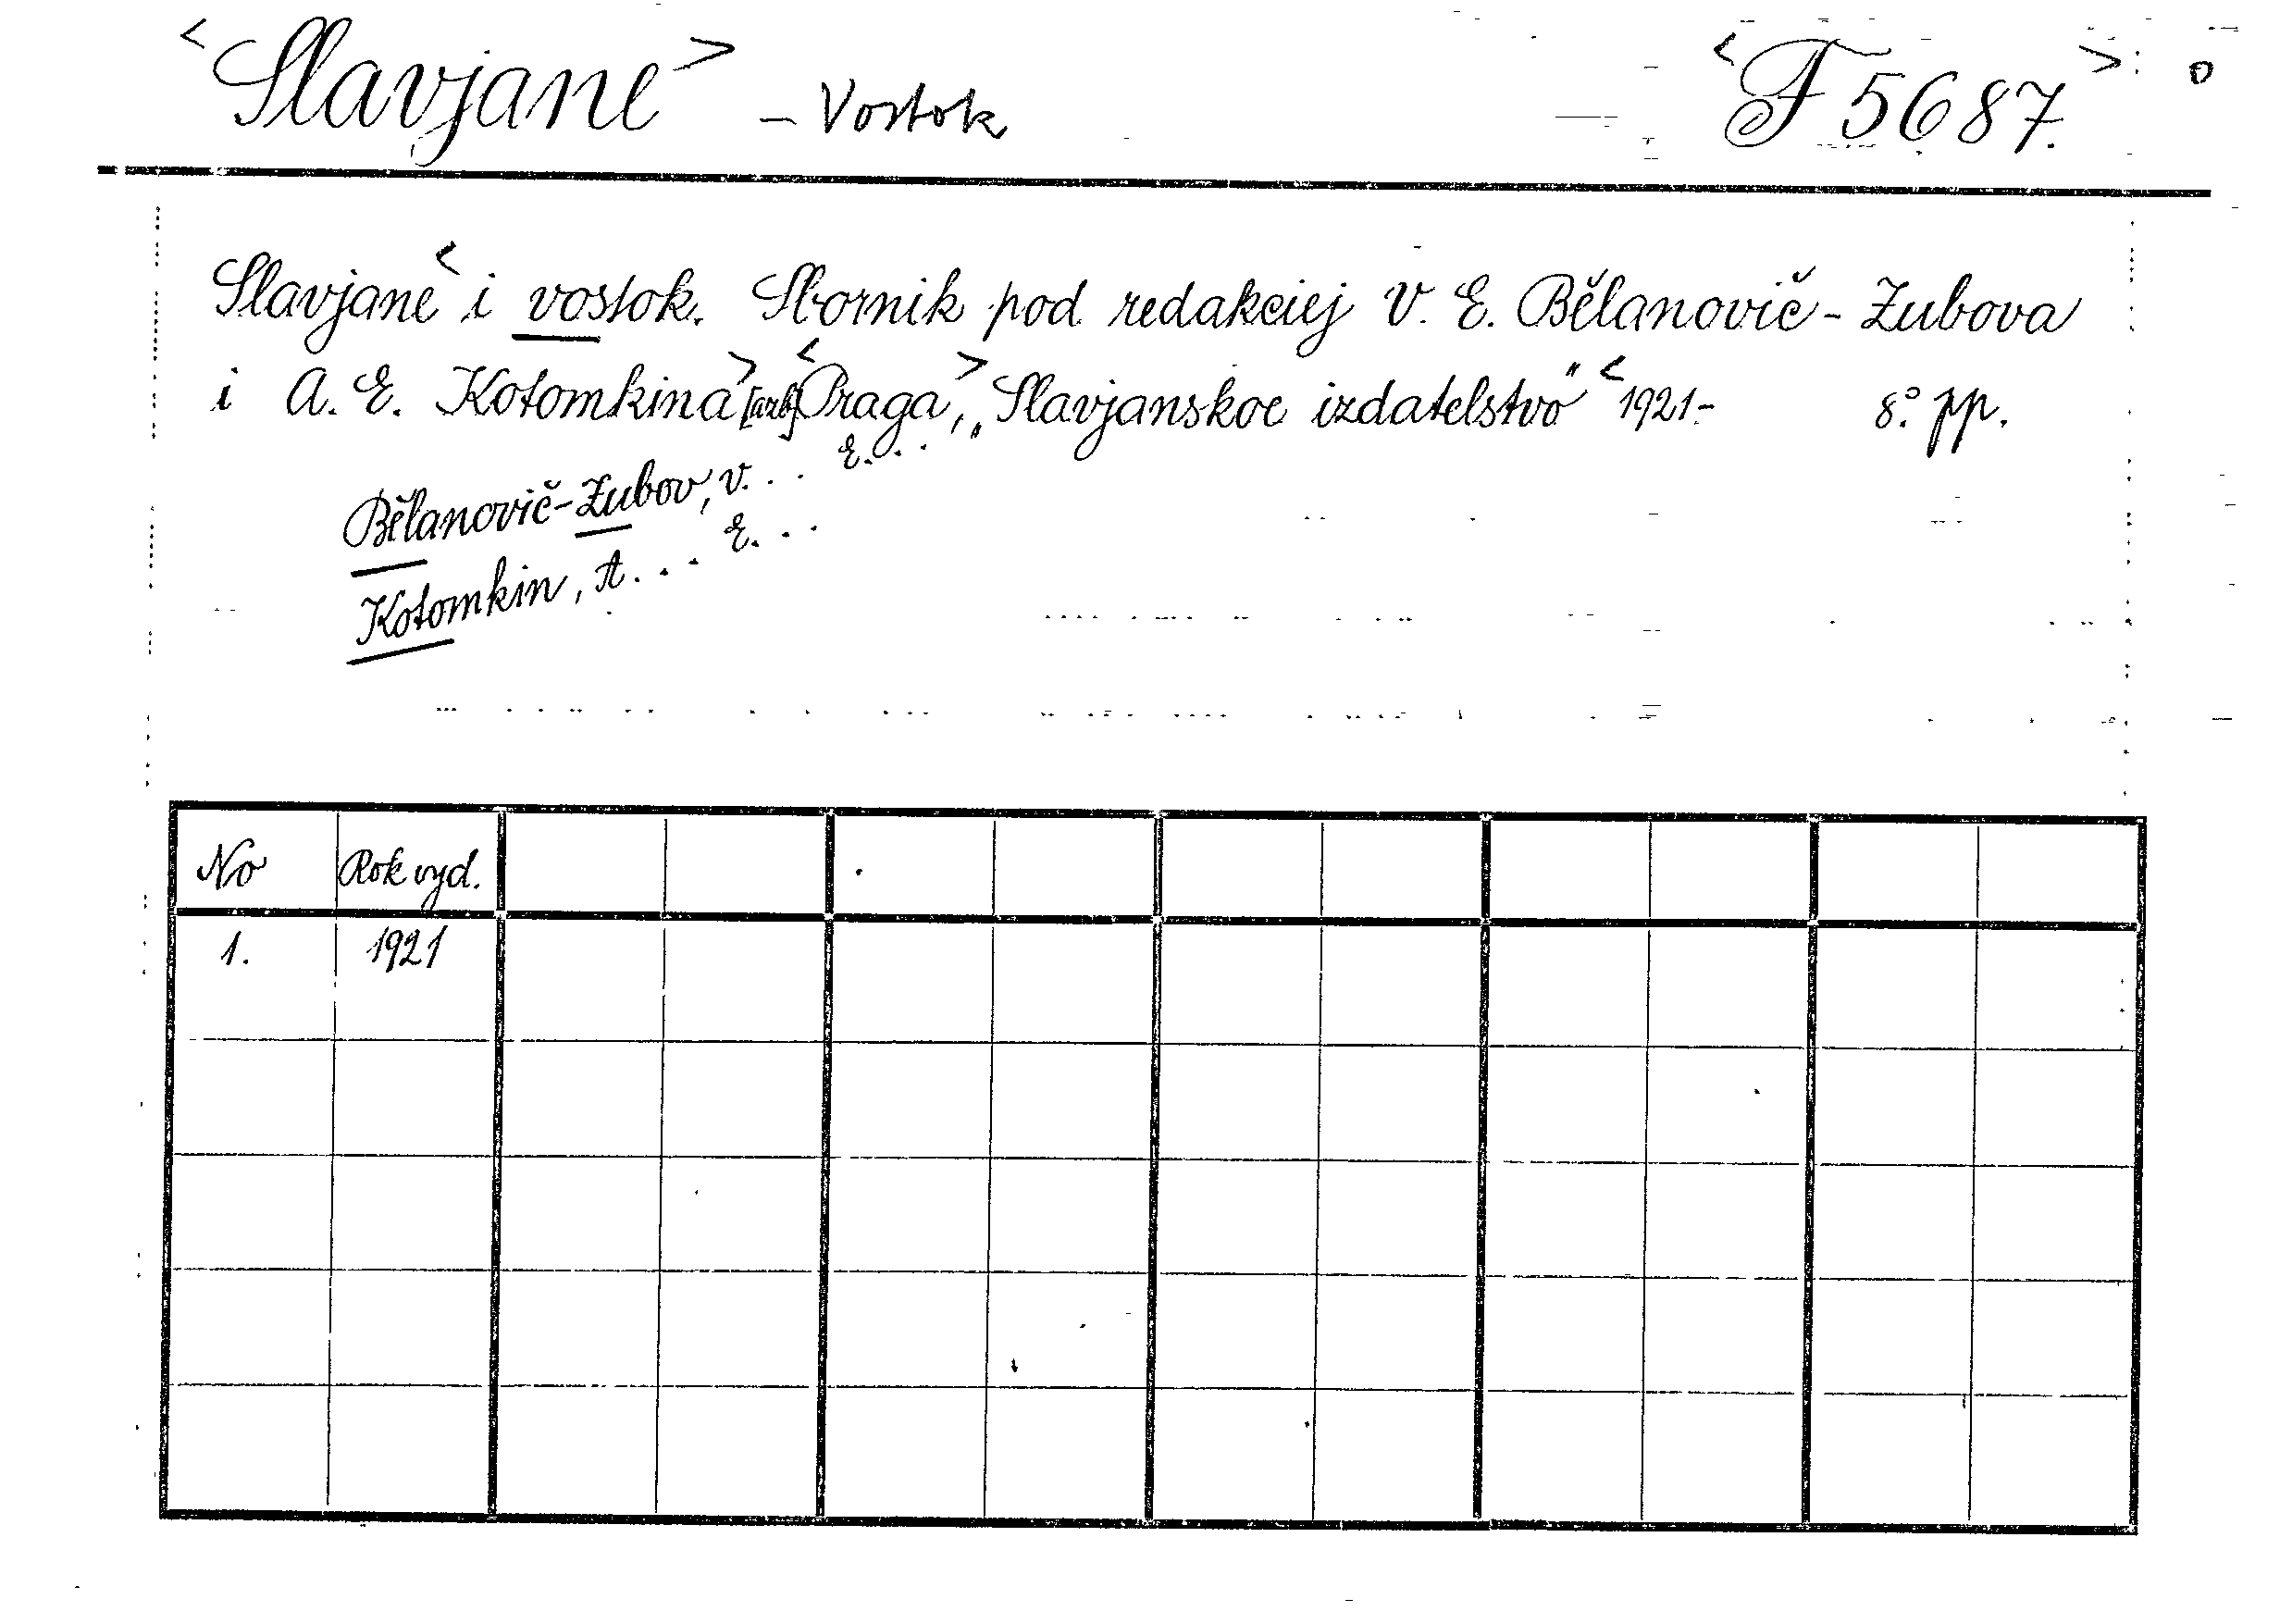 <Slavjane> - Vostok <F 5687.> o
Slavjane < i vostok. Sbornik pod redakciej V. E. Bělanovič-Zubova
i A. E. Kotomkina> <Praga,> „Slavjanskoe izdatelstvo" <1921- 8° pp.
Bělanovič-Zubov, V... E...
Kotomkin, A... E...
No Rok vyd.
1. 1921